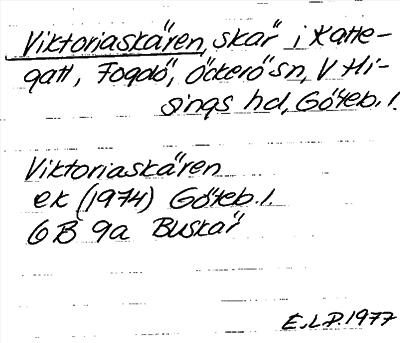 Viktoriaskären, skär i Katte-
gatt, Fogdö, Öckerö sn, V Hi-
sings hd, Göteb. l.
Viktoriaskären
ek (1974) Göteb. l.
6B 9a Buskär
E.L.P. 1977